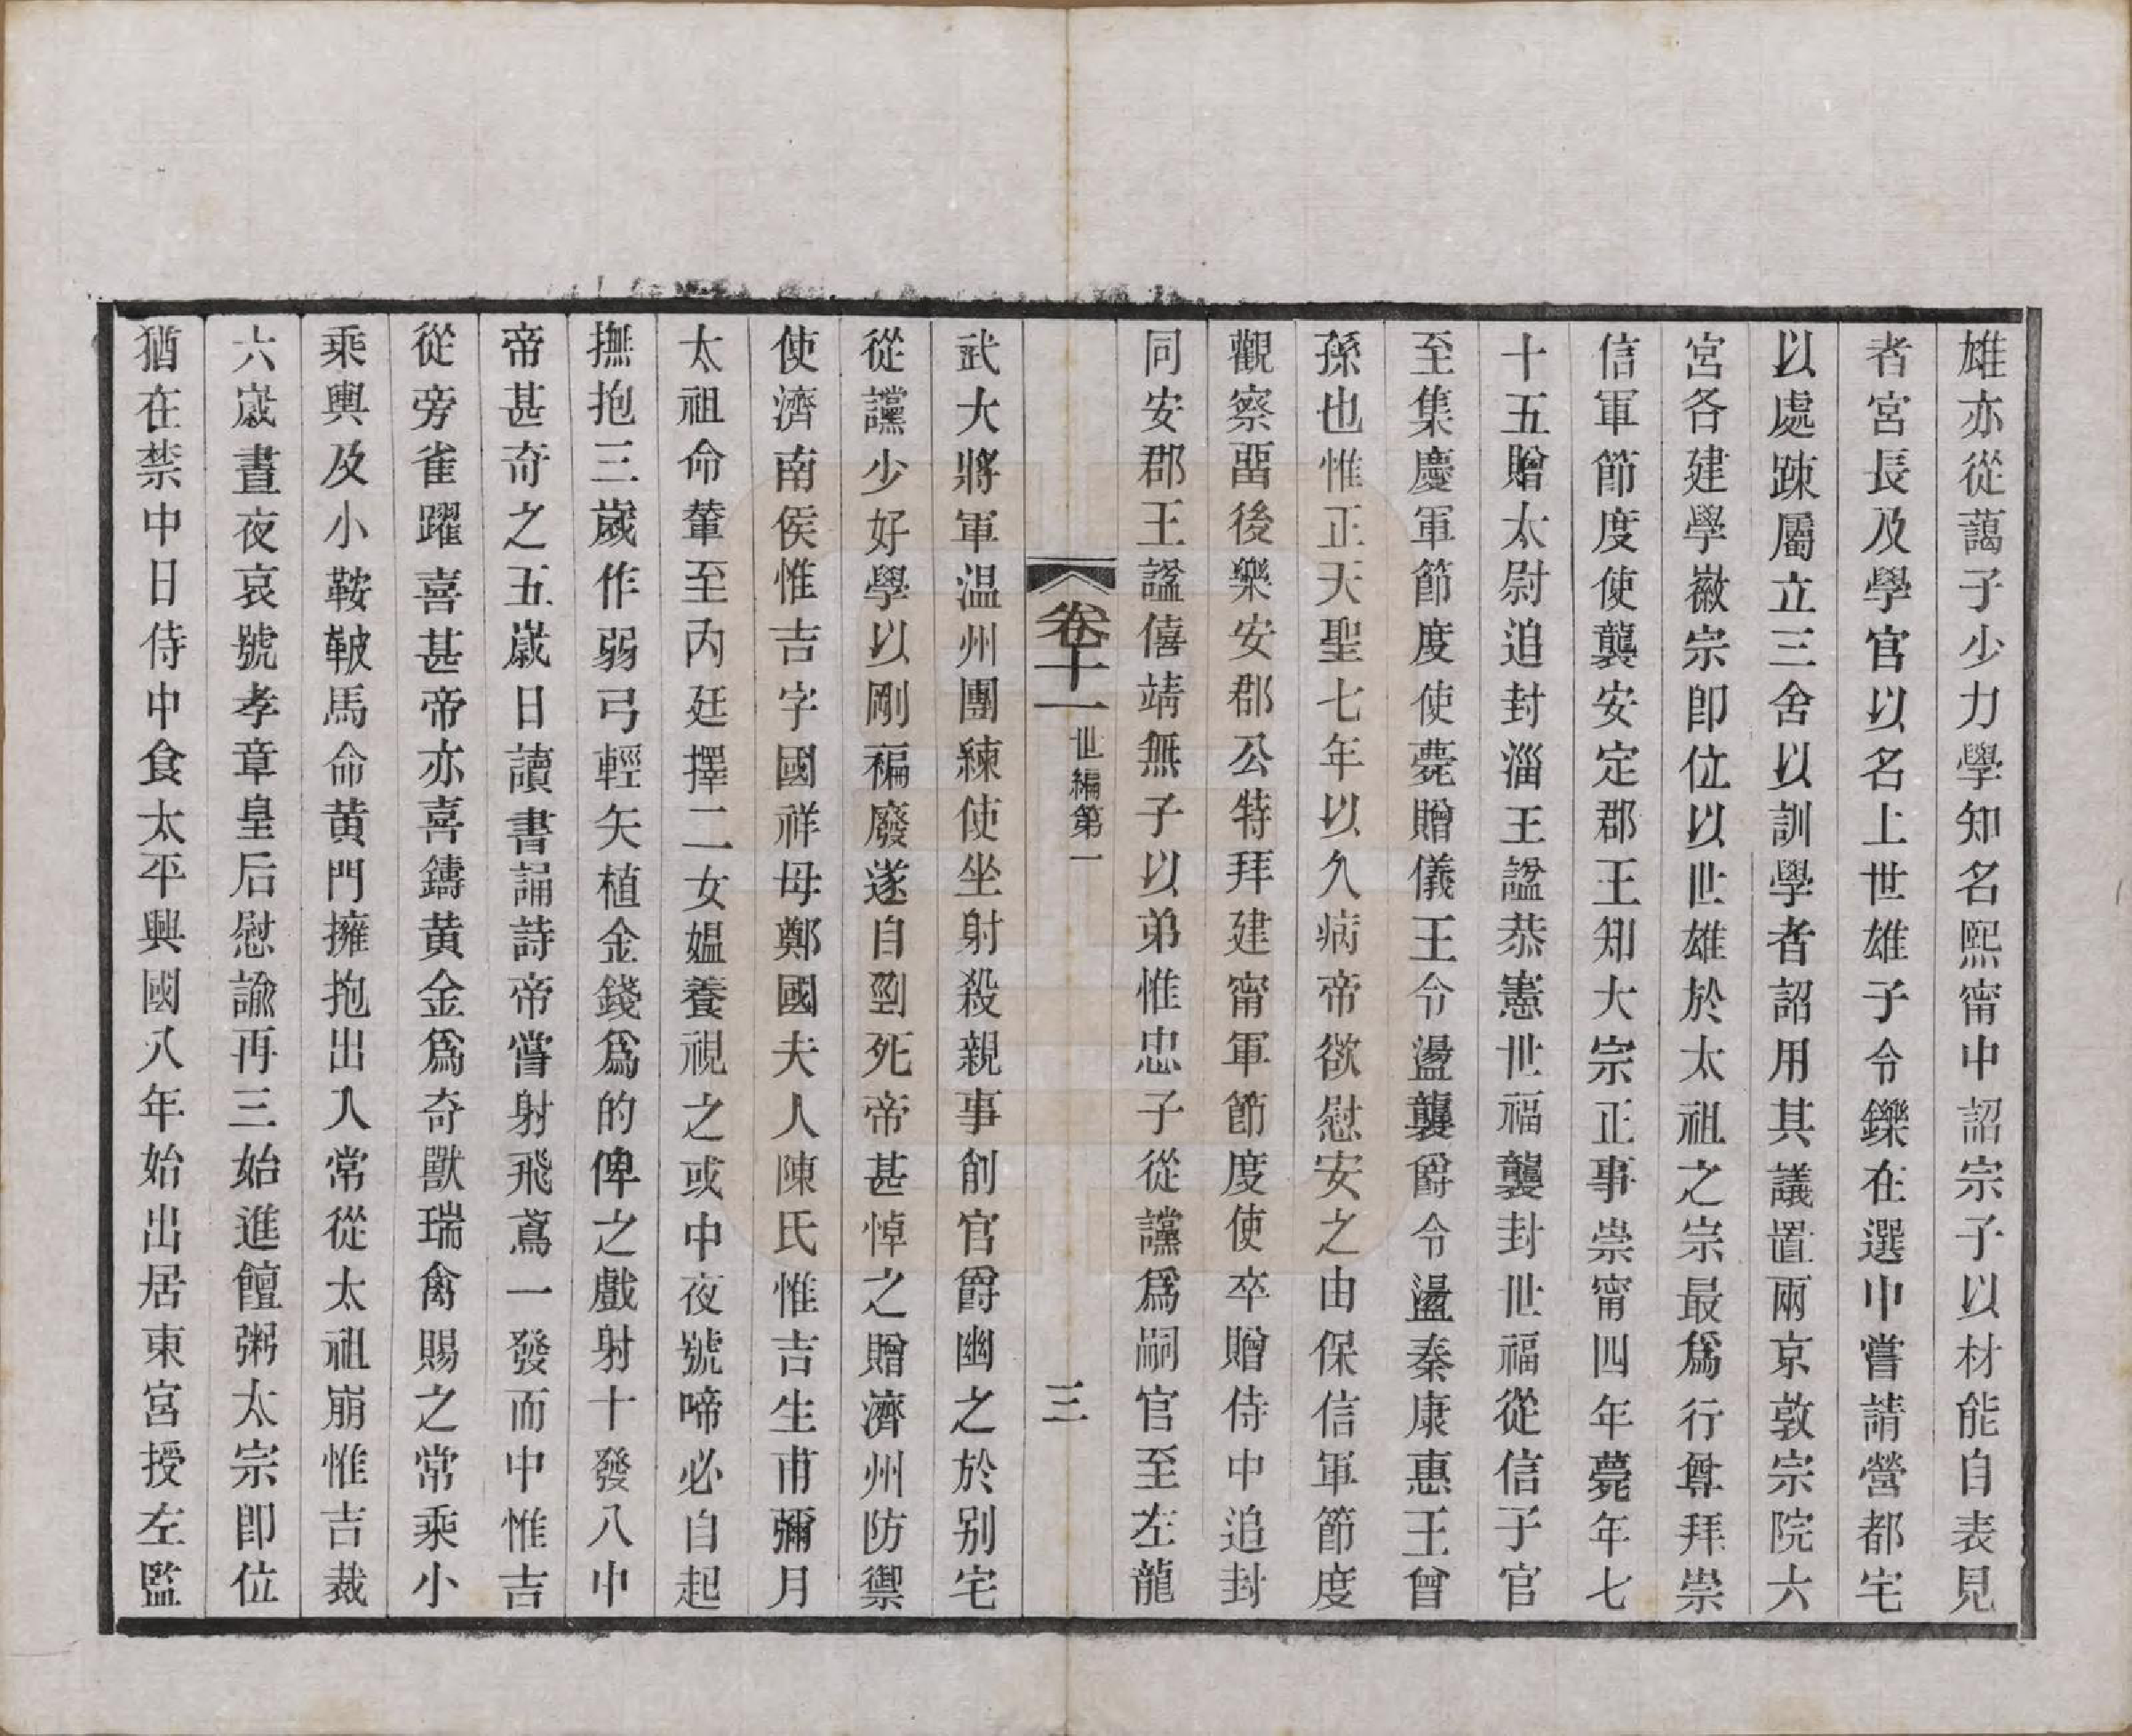 雄亦從藹子少力學知名熙甯中詔宗子以材能自表見
者宮長及學官以名上世雄子令鑠在選中嘗請營都宅
以處踈屬立三舍以訓學者詔用其議置兩京敦宗院六
宮各建學徽宗卽位以世雄於太祖之宗最爲行尊拜崇
信軍節度使襲安定郡王知大宗正事崇甯四年薨年七
十五贈太尉追封淄王諡恭憲世福襲封世福從信子官
至集慶軍節度使薨贈儀王令盪襲爵令盪秦康惠王曾
孫也惟正天聖七年以久病帝欲慰安之由保信軍節度
觀察畱後樂安郡公特拜建甯軍節度使卒贈侍中追封
同安郡王諡僖靖無子以弟惟忠子從讜爲嗣官至左龍
卷十一 世編第一 三
武大將軍温州團練使坐射殺親事削官爵幽之於别宅
從讜少好學以剛褊廢遂自剄死帝甚悼之贈濟州防禦
使濟南侯惟吉字國祥母鄭國夫人陳氏惟吉生甫彌月
太祖命輦至內廷擇二女媼養視之或中夜號啼必自起
撫抱三歲作弱弓輕矢植金錢爲的俾之戲射十發八中
帝甚奇之五歲日讀書誦詩帝嘗射飛鳶一發而中惟吉
從旁雀躍喜甚帝亦喜鑄黄金爲奇獸瑞禽賜之常乘小
乘輿及小鞍鞁馬命黄門擁抱出入常從太祖崩惟吉裁
六歲晝夜哀號孝章皇后慰諭再三始進饘粥太宗卽位
猶在禁中日侍中食太平興國八年始出居東宮授左監